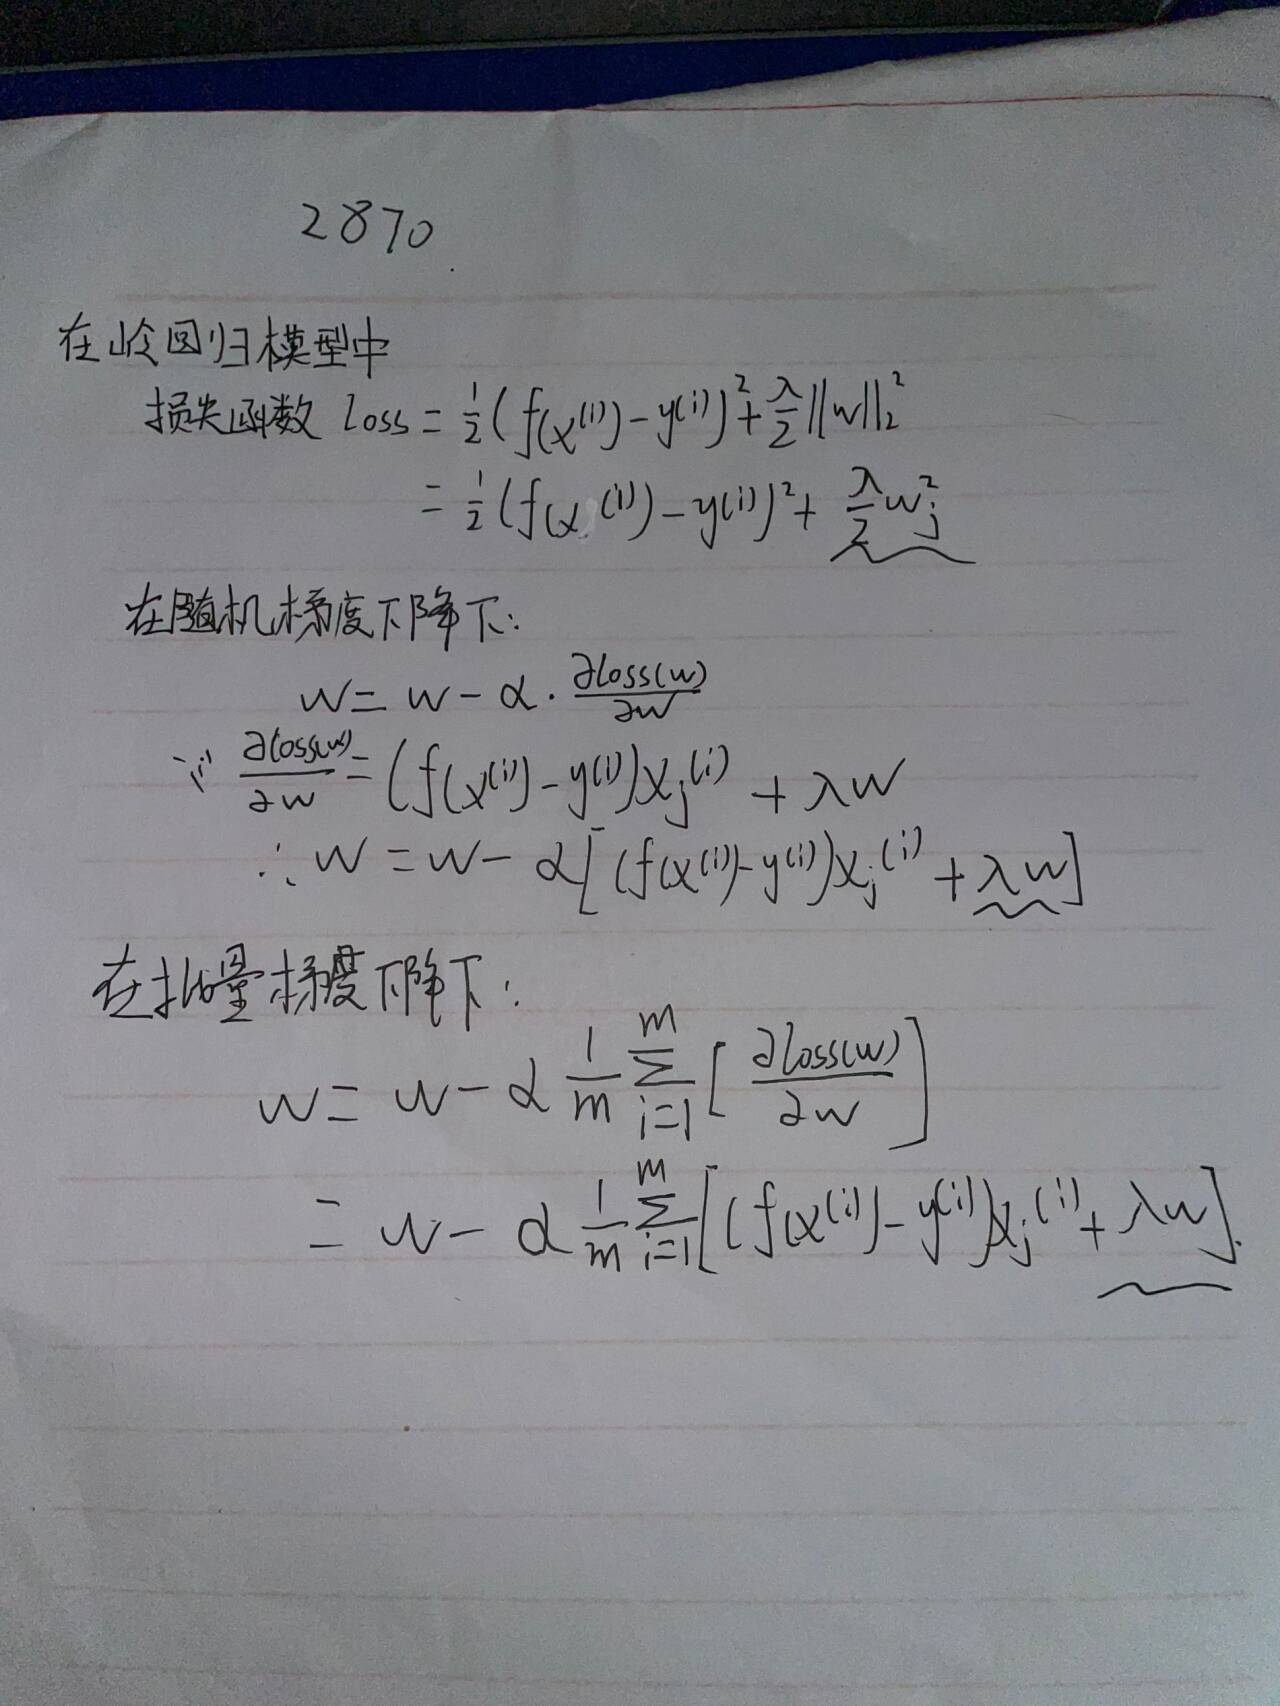 2870
在岭回归模型中
损失函数 loss = ½(f(x⁽ⁱ⁾) - y⁽ⁱ⁾)² + λ/2 ||w||₂²
= ½(f(x⁽ⁱ⁾) - y⁽ⁱ⁾)² + λ/2 wⱼ²
在随机梯度下降下:
w = w - α · ∂loss(w)/∂w
∵ ∂loss(w)/∂w = (f(x⁽ⁱ⁾) - y⁽ⁱ⁾)xⱼ⁽ⁱ⁾ + λw
∴ w = w - α[(f(x⁽ⁱ⁾) - y⁽ⁱ⁾)xⱼ⁽ⁱ⁾ + λw]
在批量梯度下降下:
w = w - α 1/m Σᵢ₌₁ᵐ [∂loss(w)/∂w]
= w - α 1/m Σᵢ₌₁ᵐ [(f(x⁽ⁱ⁾) - y⁽ⁱ⁾)xⱼ⁽ⁱ⁾ + λw].